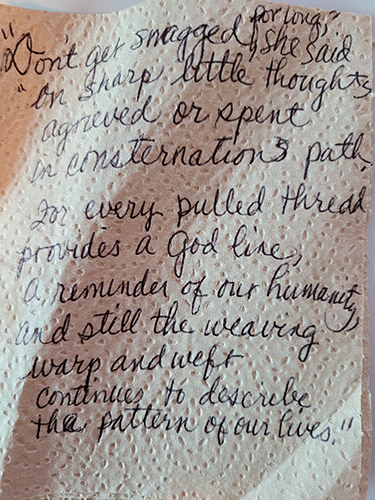 "Don't get snagged for long," she said
"on sharp little thoughts
agrieved or spent
in consternation's path.
For every pulled thread
provides a God line,
a reminder of our humanity,
and still the weaving
warp and weft
continues to describe
the pattern of our lives."